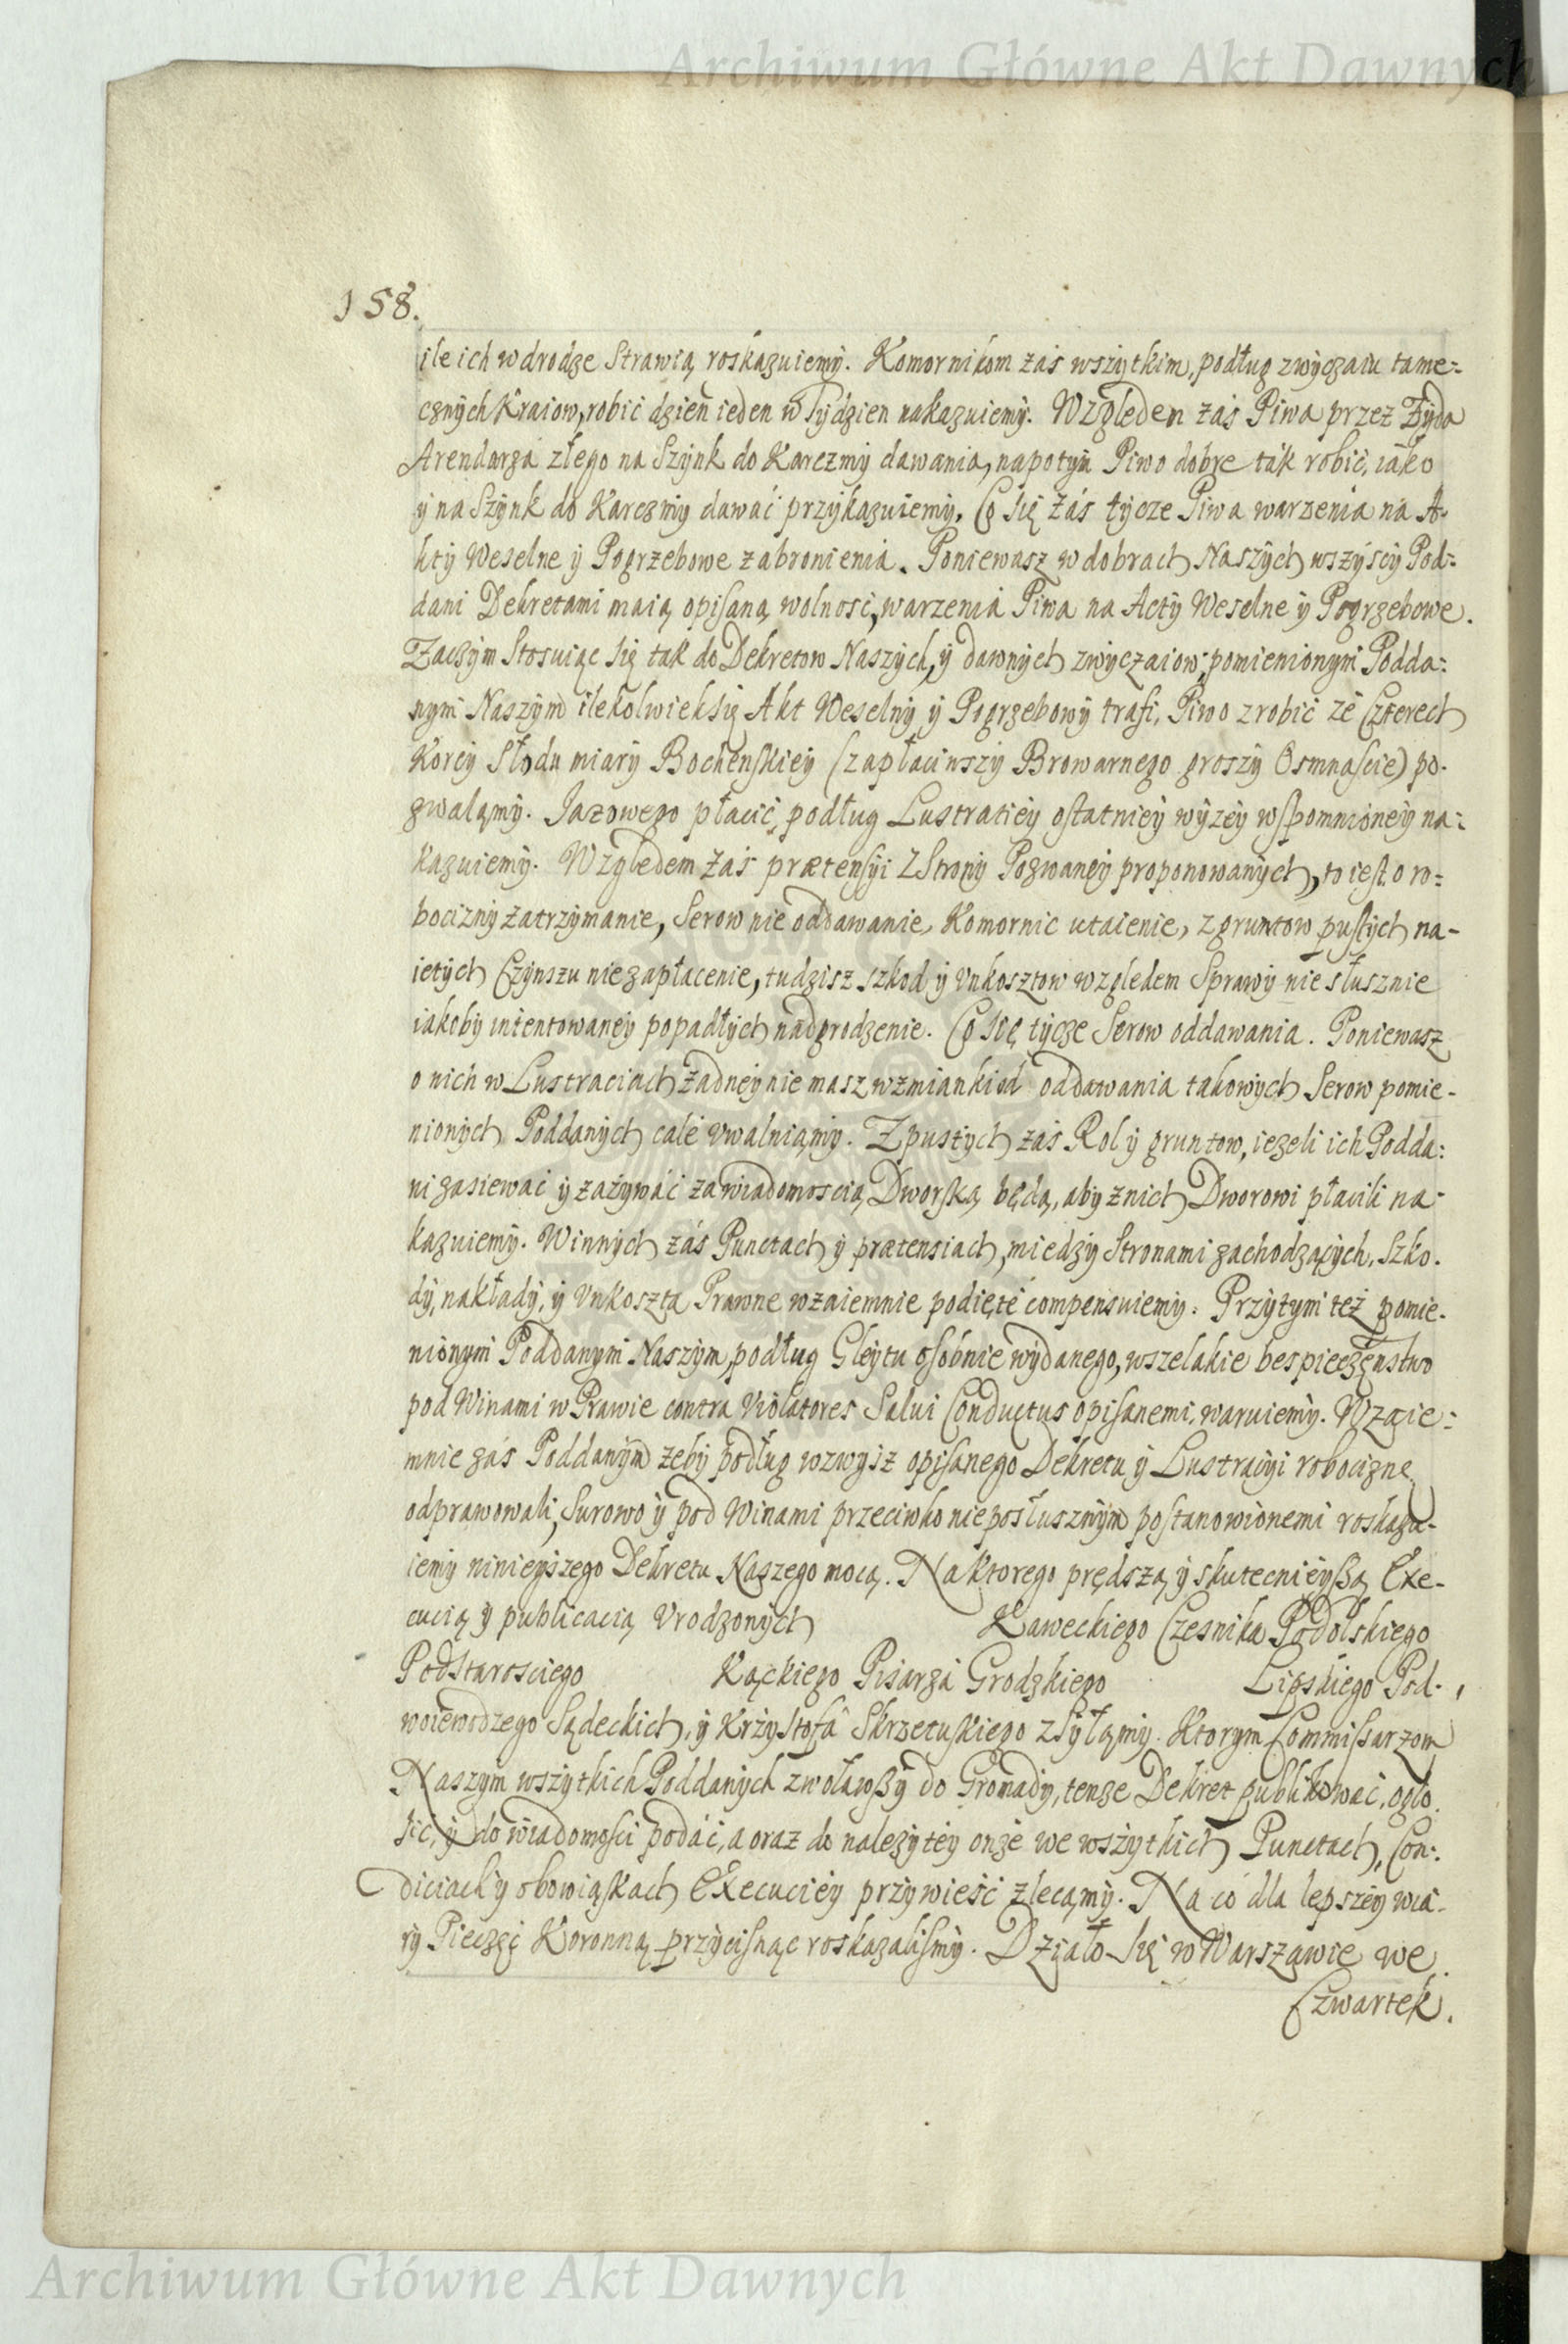 Archiwum Główne Akt Dawnych
158.
ile ich w drodze Strawią roskazuiemy. Komornikom zaś wszytkim, podług zwyczaiu tame-
cznych Kraiow, robić dzień ieden w Tydzien nakazuiemy. Względen zaś Piwa przez Żyda
Arendarza złego na Szynk do Karczmy dawania, napotym Piwo dobre tak robić, iako
y na Szynk do Karczmy dawać przykazuiemy. Co się zaś tycze Piwa warzenia na A-
kty Weselne y Pogrzebowe zabronienia. Poniewasz w dobrach Naszych wszyscy Pod-
dani Dekretami maią opisaną wolnosć, warzenia Piwa na Acty Weselne y Pogrzebowe.
Zaczym Stosuiąc się tak do Dekretow Naszych, y dawnych zwyczaiow, pomienionym Podda-
nym Naszym ilekolwiek się Akt Weselny y Pogrzebowy trafi, Piwo zrobić ze Czterech
Korcy Słodu miary Bochenskiey (zapłaciwszy Browarnego groszy Osmnascie) po-
zwalamy. Jazowego płacić, podług Lustratiey ostatniey wyzey wspomnioney na-
kazuiemy. Względem zaś prætensyi z Strony Pozwaney proponowanych, to iest o ro-
bocizny zatrzymanie, Serow nie oddawanie, Komornic utaienie, z gruntow pustych na-
ietych Czynszu niezapłacenie, tudzisz szkod y vnkosztow względem Sprawy nie słusznie
iakoby intentowaney popadłych nadgrodzenie. Co się tycze Serow oddawania. Poniewasz
o nich w Lustraciach żadney nie masz wzmianki od oddawania takowych Serow pomie-
nionych Poddanych cale vwalniamy. Z pustych zaś Rol y gruntow, iezeli ich Podda-
ni zasiewać y zażywać za wiadomoscią Dworską będą, aby z nich Dworowi płacili na-
kazuiemy. W innych zaś Punctach y prætensiach, miedzy Stronami zachodzących, Szko-
dy, nakłady, y Vnkoszta Prawne wzaiemnie podięte compensuiemy. Przytym też pomie-
nionym Poddanym Naszym, podług Gleytu osobnie wydanego, wszelakie bespieczęnstwo
pod Winami w Prawie contra Violatores Salui Conductus opisanemi, waruiemy. Wzaie-
mnie zaś Poddanym żeby podług wzwysz opisanego Dekretu y Lustracyi robociznę
odprawowali, Surowo y pod Winami przeciwko nieposłusznym postanowionemi roskazu-
iemy ninieyszego Dekretu Naszego mocą. Na ktorego prędszą y skutecznieyszą Exe-
cucią y publicacią Vrodzonych Ławeckiego Czesnika Podolskiego
Podstarosciego Kąckiego Pisarza Grodzkiego Lipskiego Pod-
woiewodzego Sądeckich, y Krzysztofa Skrzetuskiego zsyłamy. Ktorym Commissarzom
Naszym wszytkich Poddanych zwoławszy do Gromady, tenze Dekret publikować, ogło-
sić, y do wiadomosci podać, a oraz do nalezytey onze we wszytkich Punctach, Con-
diciach y obowiąskach Execuciey przywieść zlecamy. Na co dla lepszey wia-
ry Pieczęć Koronną przycisnąc roskazalismy. Działo się w Warszawie we
Czwartek.
Archiwum Główne Akt Dawnych